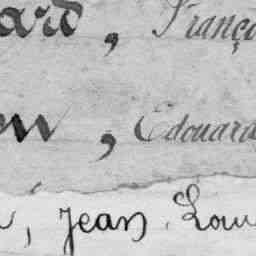 ard, Franço
on, Edouard
, Jean Lou